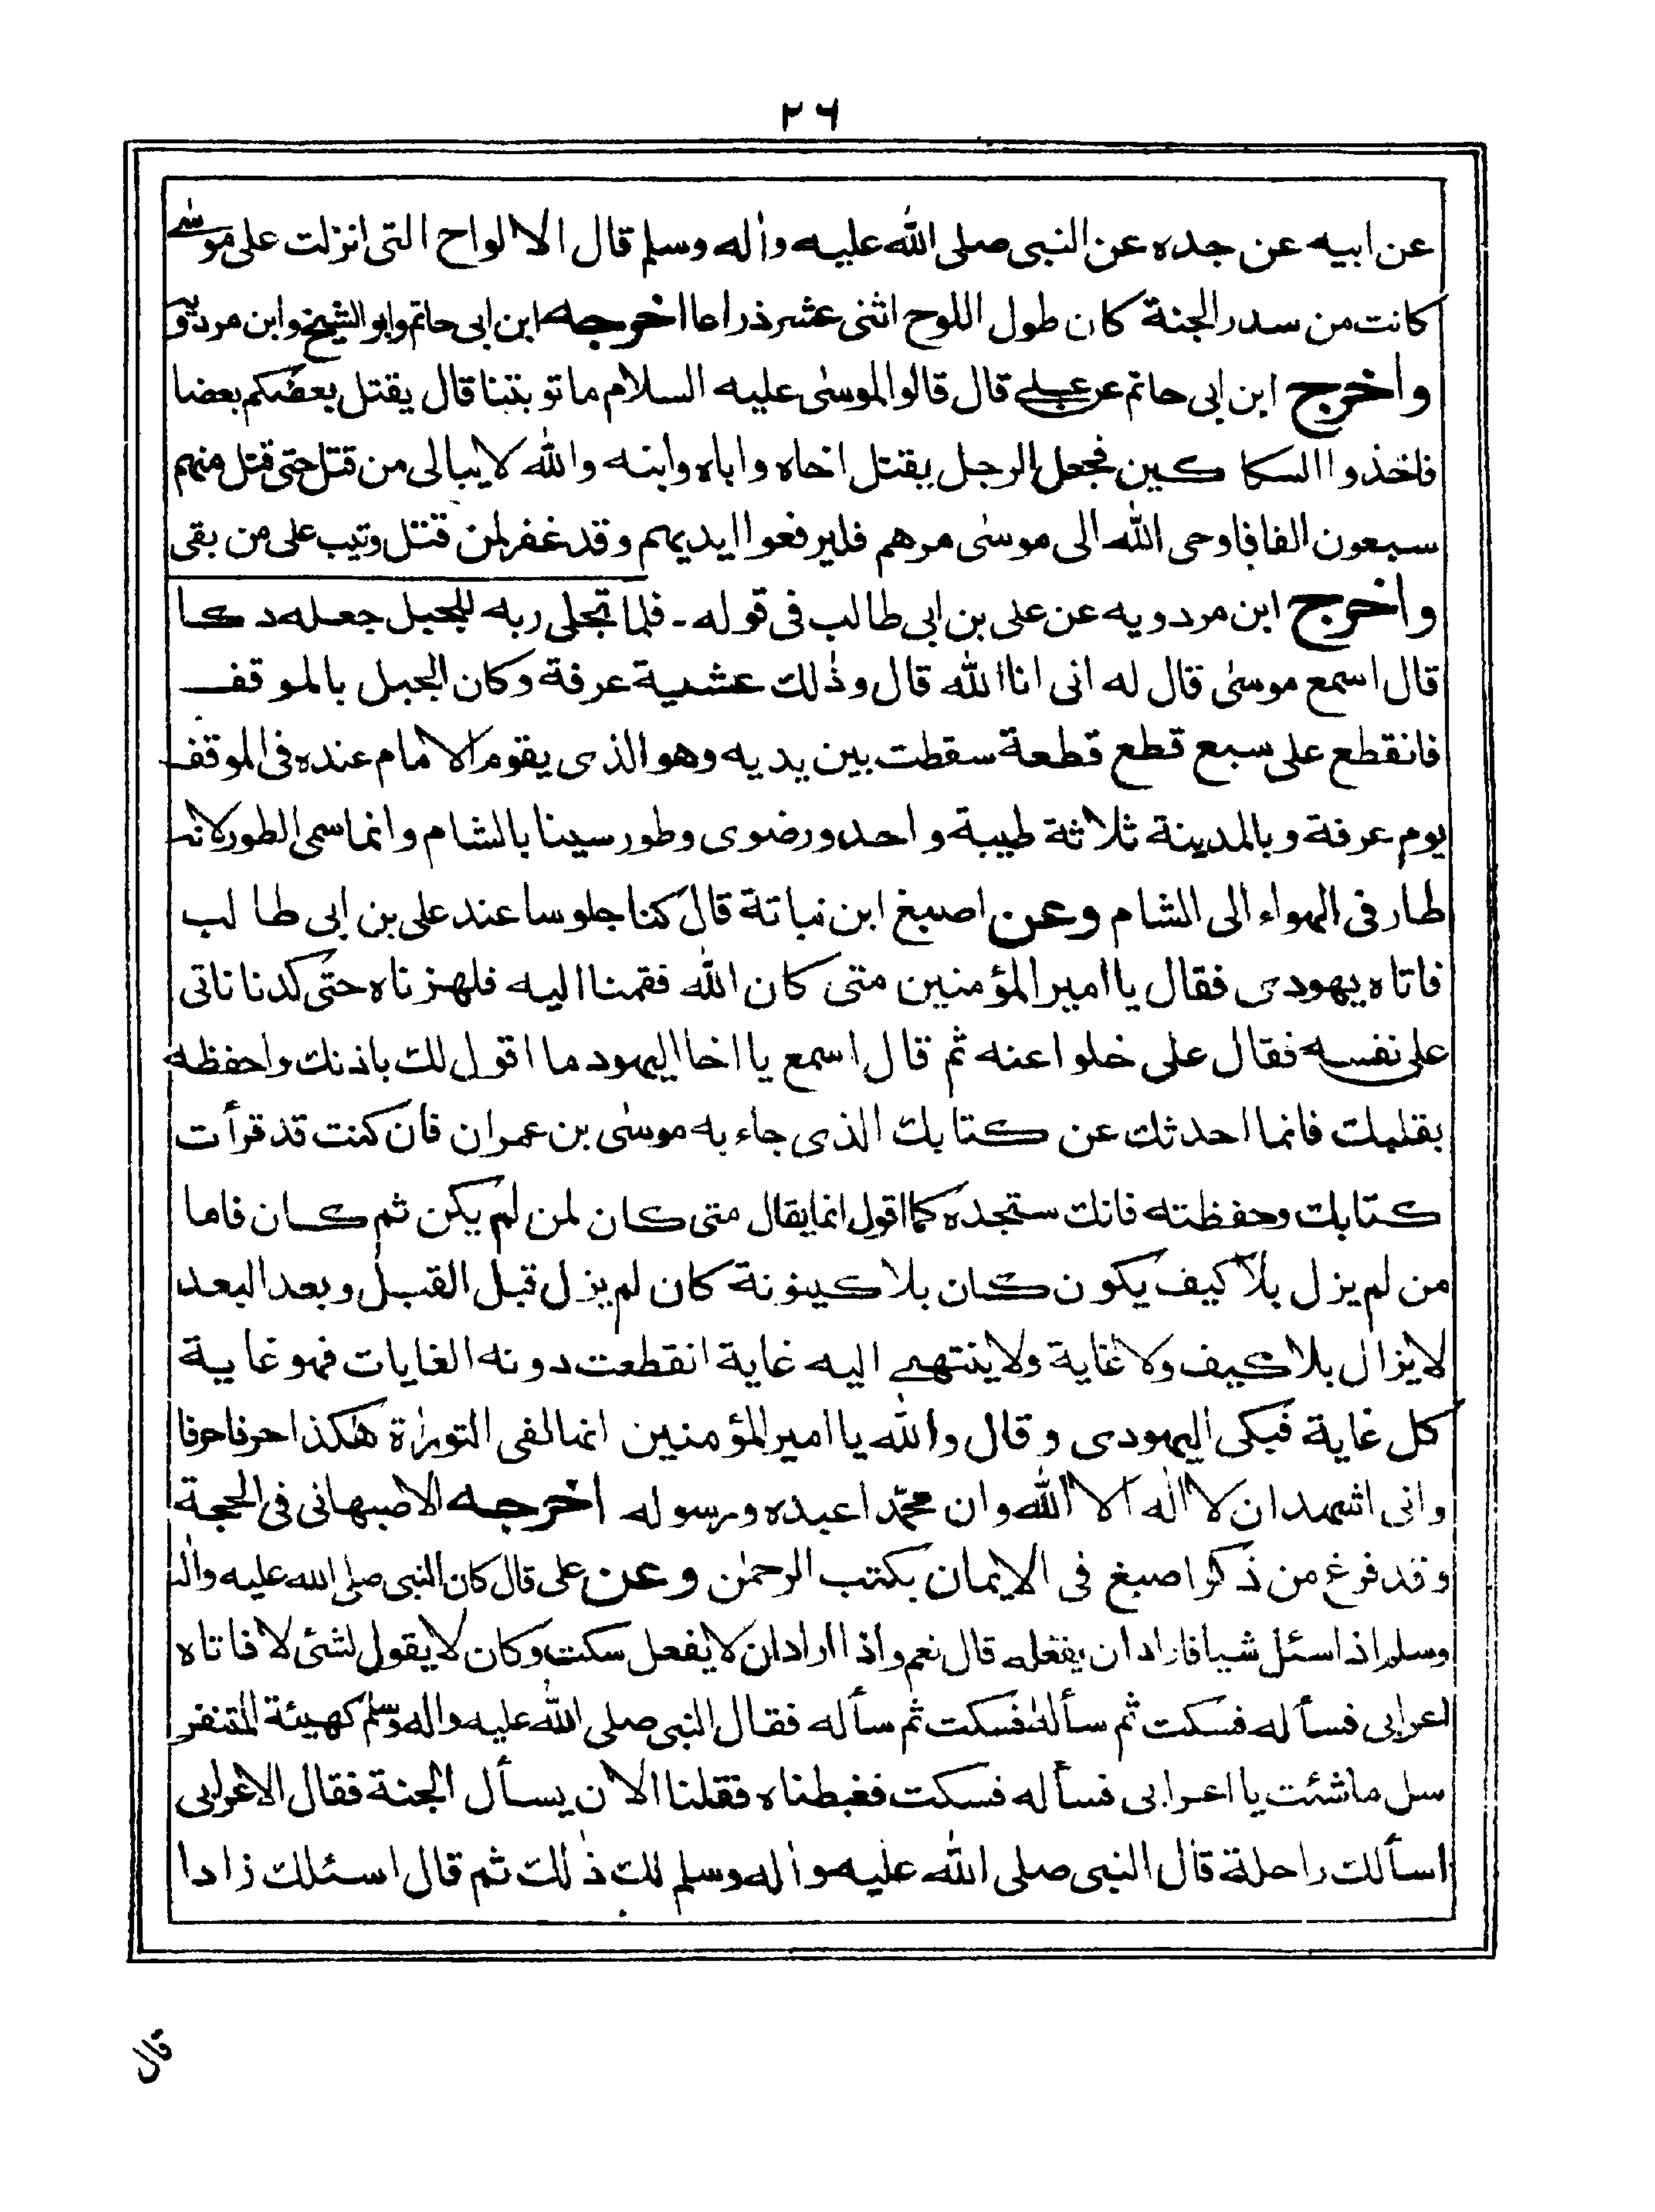 ٢٦
عن ابيه عن جده عن النبى صلى الله عليه واٰله وسلم قال الالواح التى انزلت على موسٰى
كانت من سدر الجنة كان طول اللوح اثنى عشر ذراعا اخرجه ابن ابى حاتم وابو الشيخ وابن مردويه
واخرج ابن ابى حاتم عن على قال قالوا لموسٰى عليه السلام ما توبتنا قال يقتل بعضكم بعضا
فاخذوا السكاكين فجعل الرجل يقتل اخاه واباه وابنه والله لا يبالى من قتل حتى قتل منهم
سبعون الفا فاوحى الله الى موسٰى مرهم فليرفعوا ايديهم وقد غفر لمن قتل وتيب على من بقى
واخرج ابن مردويه عن على بن ابى طالب فى قوله۔ فلما تجلى ربه للجبل جعله دكا
قال اسمع موسٰى قال له انى انا الله قال وذٰلك عشية عرفة وكان الجبل بالموقف
فانقطع على سبع قطع قطعة سقطت بين يديه وهو الذى يقوم الامام عنده فى الموقف
يوم عرفة وبالمدينة ثلاثة طيبة واحد ورضوى وطور سينا بالشام وانما سمى الطور لانه
طار فى الهواء الى الشام وعن اصبغ ابن نباتة قال كنا جلوسا عند على بن ابى طالب
فاتاه يهودى فقال يا امير المؤمنين متى كان الله فقمنا اليه فلهزناه حتى كدنا ناتى
على نفسه فقال على خلوا عنه ثم قال اسمع يا اخا اليهود ما اقول لك باذنك واحفظه
بقلبك فانما احدثك عن كتابك الذى جاء به موسٰى بن عمران فان كنت قد قرأت
كتابك وحفظته فانك ستجده كما اقول انما يقال متى كان لمن لم يكن ثم كان فاما
من لم يزل بلا كيف يكون كان بلا كينونة كان لم يزل قبل القبل وبعد البعد
لا يزال بلا كيف ولا غاية ولا ينتهى اليه غاية انقطعت دونه الغايات فهو غاية
كل غاية فبكى اليهودى وقال والله يا امير المؤمنين انها لفى التوراة هٰكذا حرفا حرفا
وانى اشهد ان لا اله الا الله وان محمدا عبده ورسوله اخرجه الاصبهانى فى الحجة
وقد فرغ من ذكر اصبغ فى الايمان بكتب الرحمٰن وعن على قال كان النبى صلى الله عليه واٰله
وسلم اذا سئل شيا فاراد ان يفعله قال نعم واذا اراد ان لا يفعل سكت وكان لا يقول لشئ لا فاتاه
اعرابى فسأله فسكت ثم سأله فسكت ثم سأله فقال النبى صلى الله عليه واله وسلم كهيئة المتنفر
سل ما شئت يا اعرابى فسأله فسكت فغبطناه فقلنا الان يسأل الجنة فقال الاعرابى
اسألك راحلة قال النبى صلى الله عليه واٰله وسلم لك ذٰلك ثم قال اسئلك زادا
قال